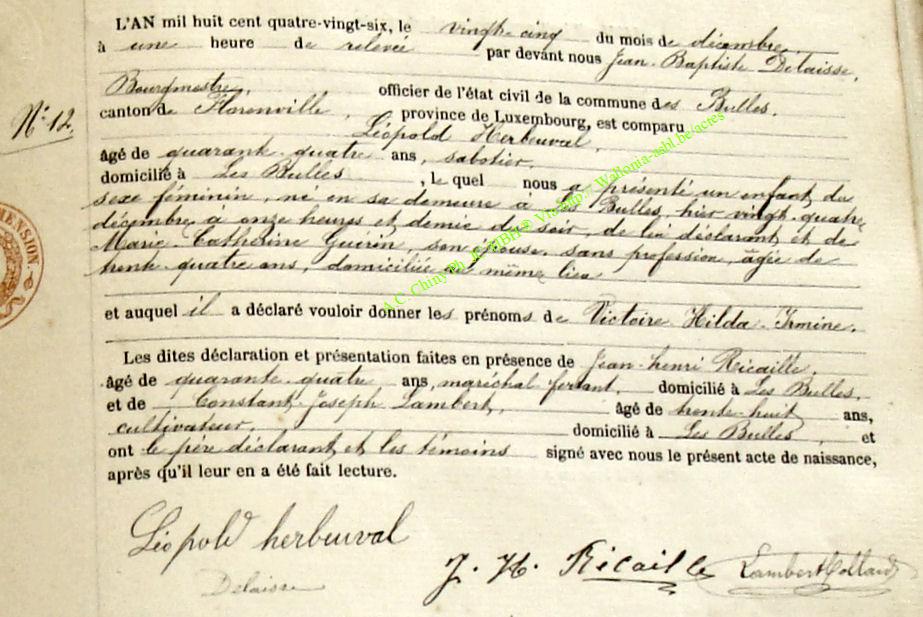 L'AN mil huit cent quatre-vingt-six, le vingt-cinq du mois de décembre,
à une heure de relevée par devant nous Jean-Baptiste Delaisse,
Bourgmestre, officier de l'état civil de la commune des Bulles,
N° 12.
canton de Florenville, province de Luxembourg, est comparu
Léopold Herbeuval,
âgé de quarante-quatre ans, sabotier,
domicilié à Les Bulles, le quel nous a présenté un enfant du
sexe féminin, né en sa demeure à Les Bulles, hier vingt-quatre
décembre, à onze heures et demie du soir, de lui déclarant et de
Marie-Catherine Guérin, son épouse, sans profession, âgée de
trente-quatre ans, domiciliée au même lieu
et auquel il a déclaré vouloir donner les prénoms de Victoire Hilda Irmine.
Les dites déclaration et présentation faites en présence de Jean-henri Ricaille,
âgé de quarante-quatre ans, maréchal ferrant, domicilié à Les Bulles,
et de Constant-Joseph Lambert, âgé de trente-huit ans,
cultivateur, domicilié à Les Bulles, et
ont le père déclarant et les témoins signé avec nous le présent acte de naissance,
après qu'il leur en a été fait lecture.
Léopold herbeuval
Delaisse
J. H. Ricaille
Lambert Collard
MENSION
A.C. Chiny Wallonia-asbl.be/actes